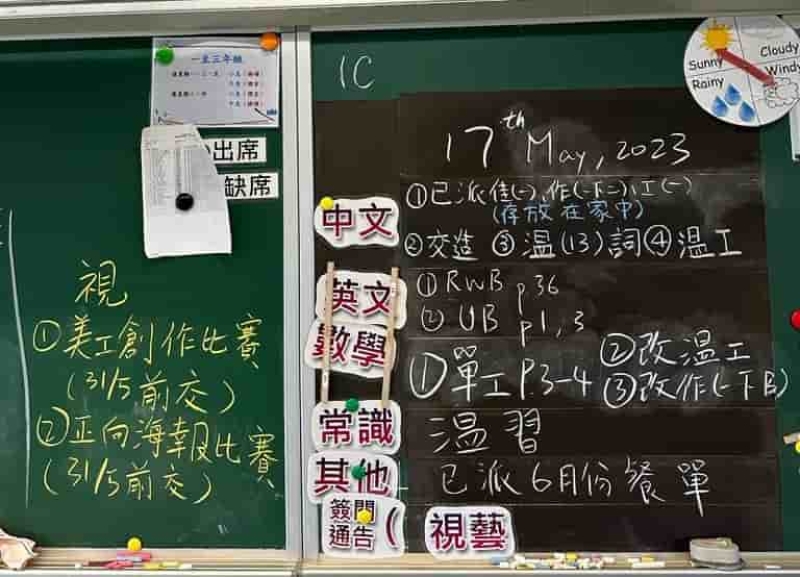 一至三年級
出席
缺席
視
①美工創作比賽
(31/5前交)
②正向海報比賽
(31/5前交)
1C
17th May, 2023
中文
①已派佳(一),作(一下二),工(一)
(存放在家中)
②交造 ③溫(13)詞④溫工
英文
①RWB p36
②UB p1,3
數學
①單工P.3-4 ②改溫工
③改作(一下B)
常識
溫習
其他
已派6月份餐單
簽閱
通告(
視藝
Sunny
Cloudy
Windy
Rainy